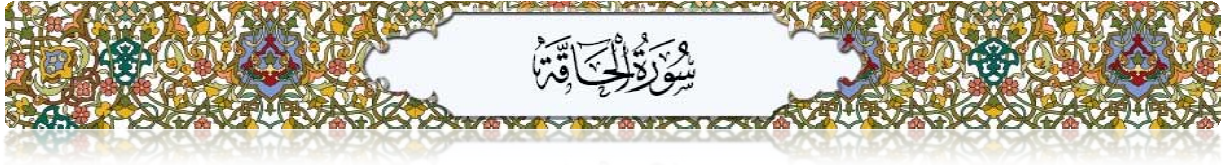 سُورَةُ الْحَاقَّةِ